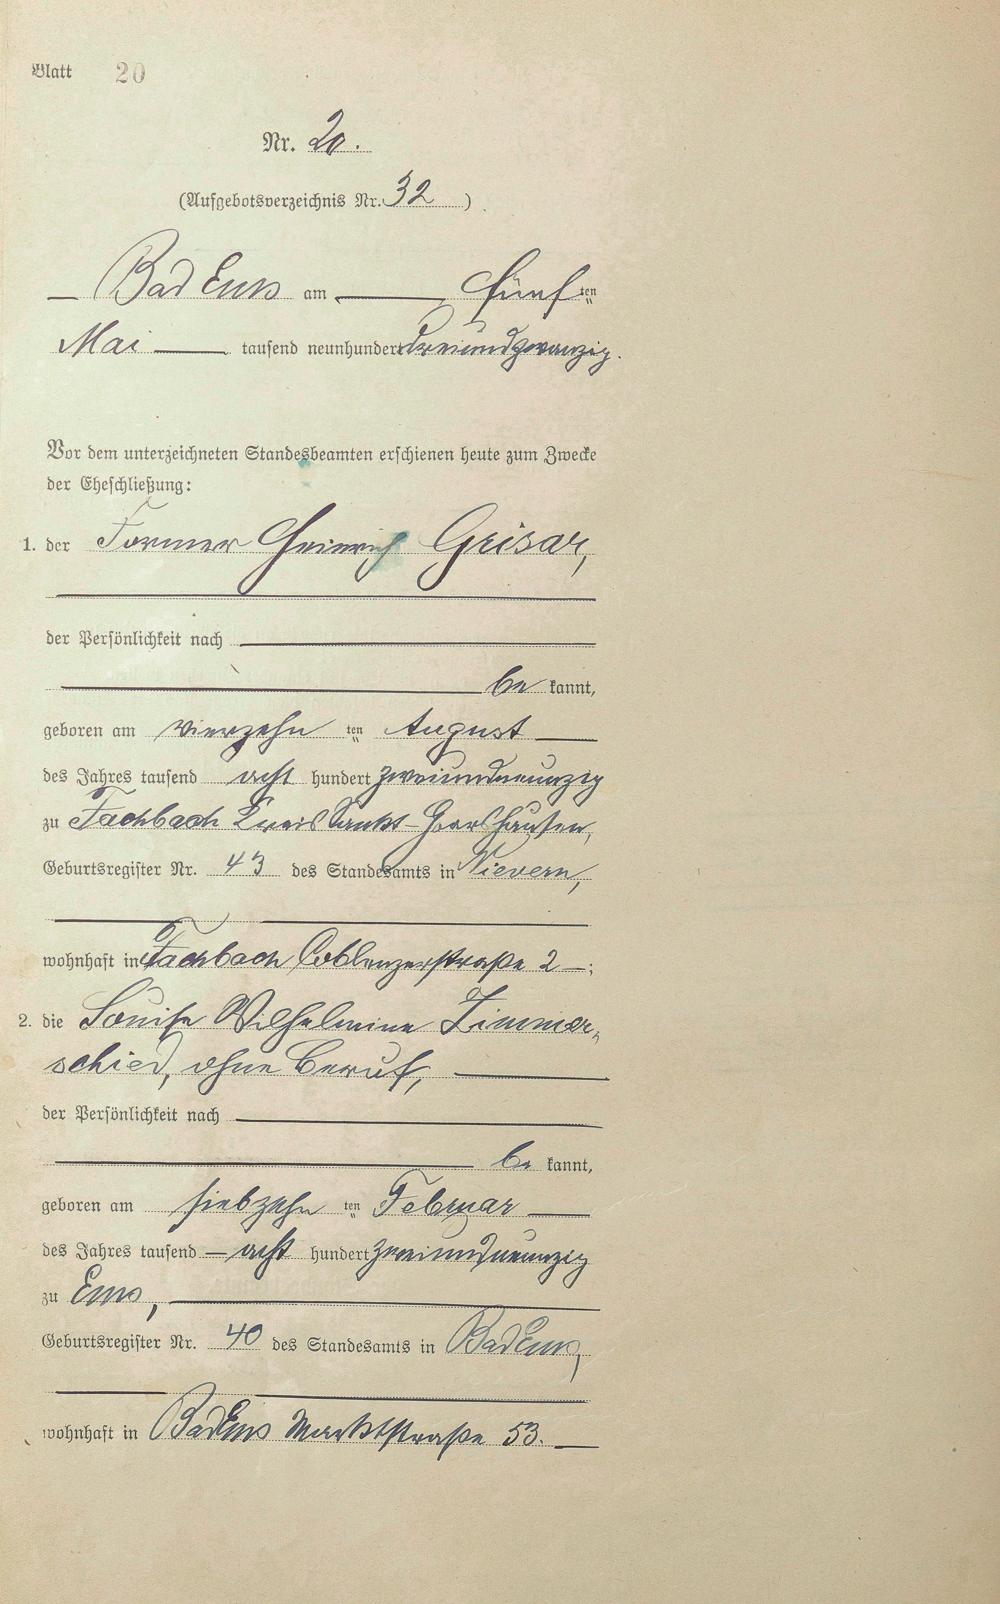 Blatt 20
Nr. 20.
(Aufgebotsverzeichnis Nr. 32)
Bad Ems am fünf ten
Mai tausend neunhundert dreiundzwanzig.
Vor dem unterzeichneten Standesbeamten erschienen heute zum Zwecke
der Eheschließung:
1. der Former Heinrich Grisar,
der Persönlichkeit nach
be kannt,
geboren am vierzehn ten August
des Jahres tausend acht hundert zweiundneunzig
zu Fachbach Kreis Sankt-Goarshausen,
Geburtsregister Nr. 43 des Standesamts in Nievern,
wohnhaft in Fachbach Coblenzerstraße 2 ;
2. die Louise Wilhelmine Zimmer-
schied, ohne Beruf,
der Persönlichkeit nach
be kannt,
geboren am siebzehn ten Februar
des Jahres tausend acht hundert zweiundneunzig
zu Ems,
Geburtsregister Nr. 40 des Standesamts in Bad Ems,
wohnhaft in Bad Ems Marktstraße 53.